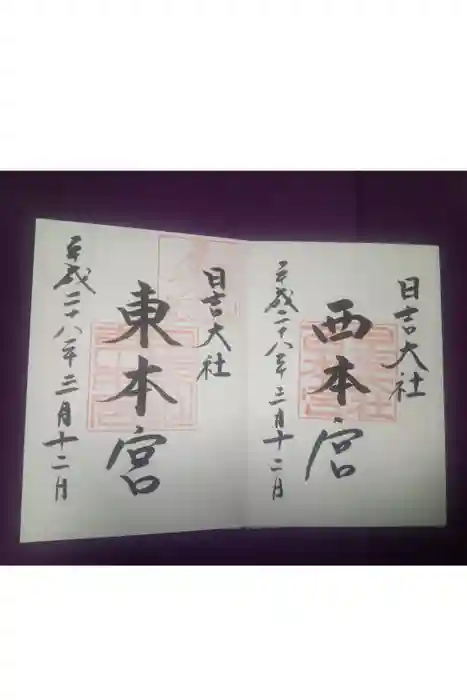 日吉大社
西本宮
平成二十八年三月十二日
日吉大社
東本宮
平成二十八年三月十二日